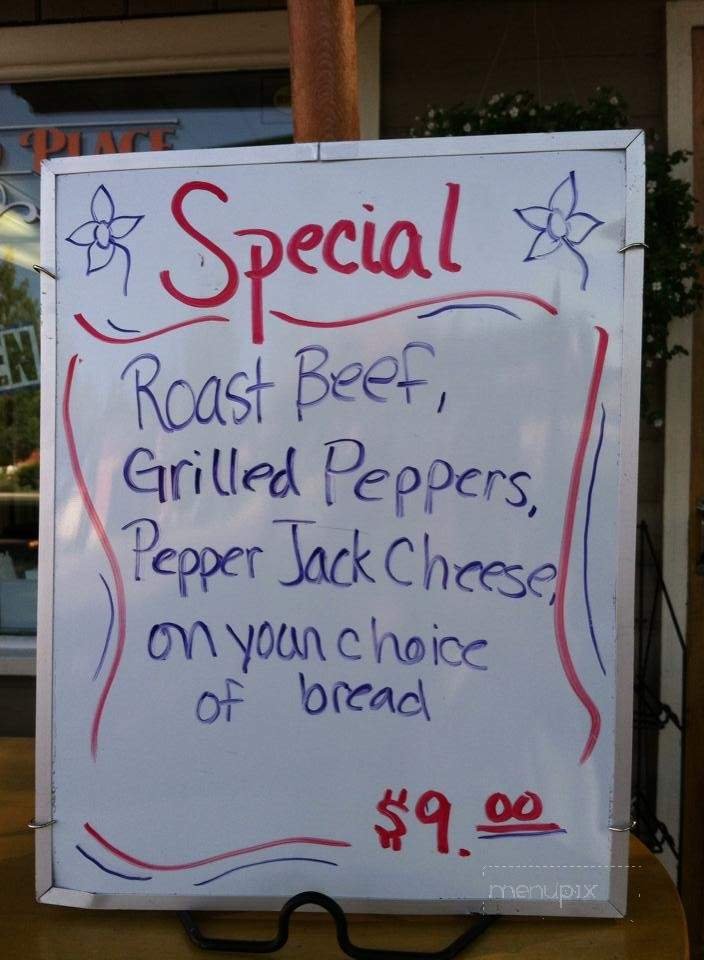 PLACE
Special
Roast Beef,
Grilled Peppers,
Pepper Jack Cheese,
on your choice
of bread
$9.00
menupix